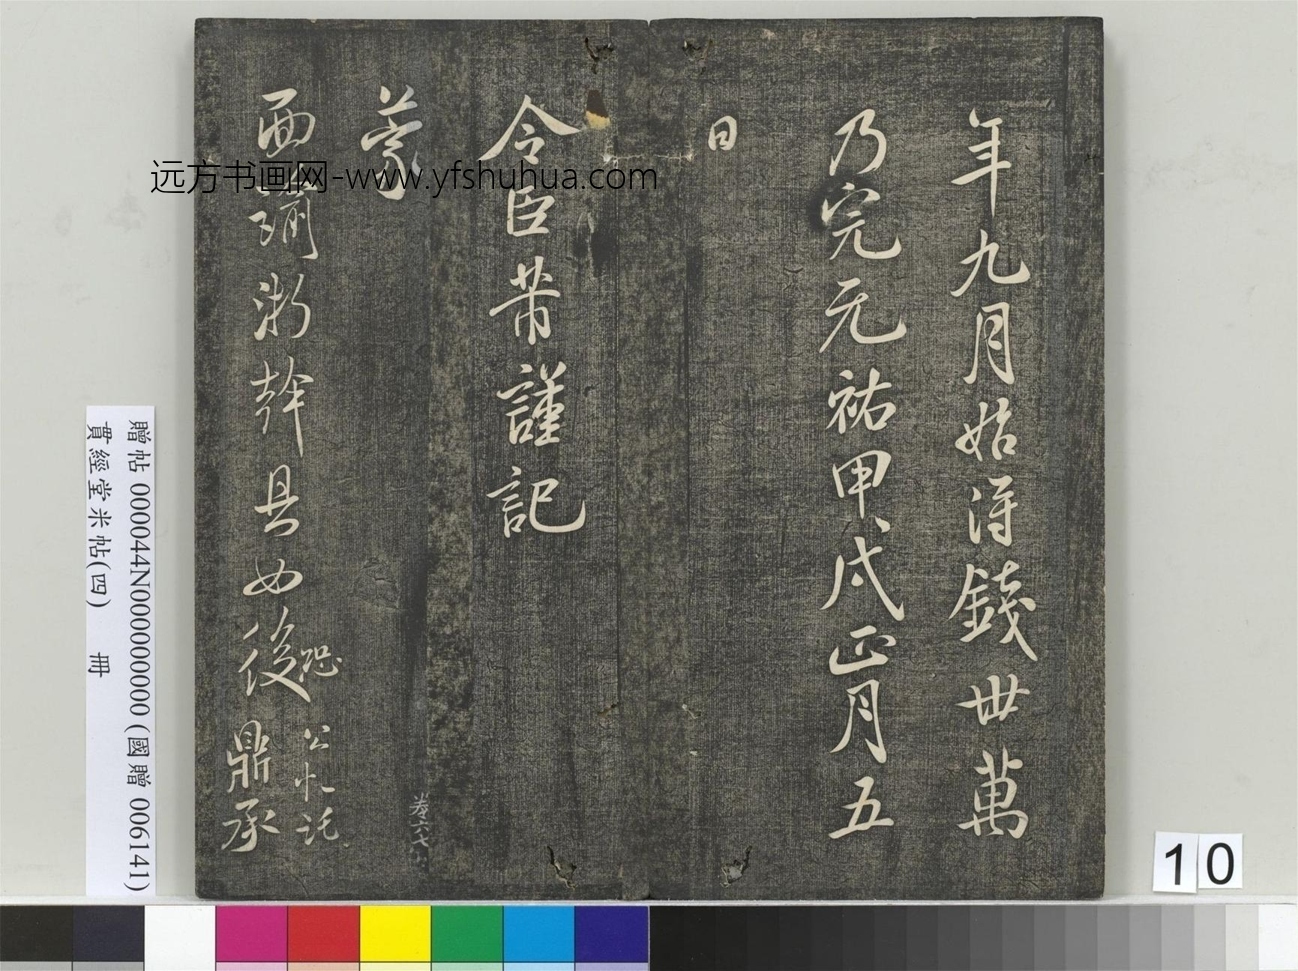 年九月始得錢卅萬
乃完元祐甲戌正月五
日
令臣芾謹記
蒙
面諭淅幹具如後恐
公忙託
鼎承
卷六
远方书画网-www.yfshuhua.com
贈帖 000044N000000000 (國贈 006141)
貫經堂米帖(四) 冊
10